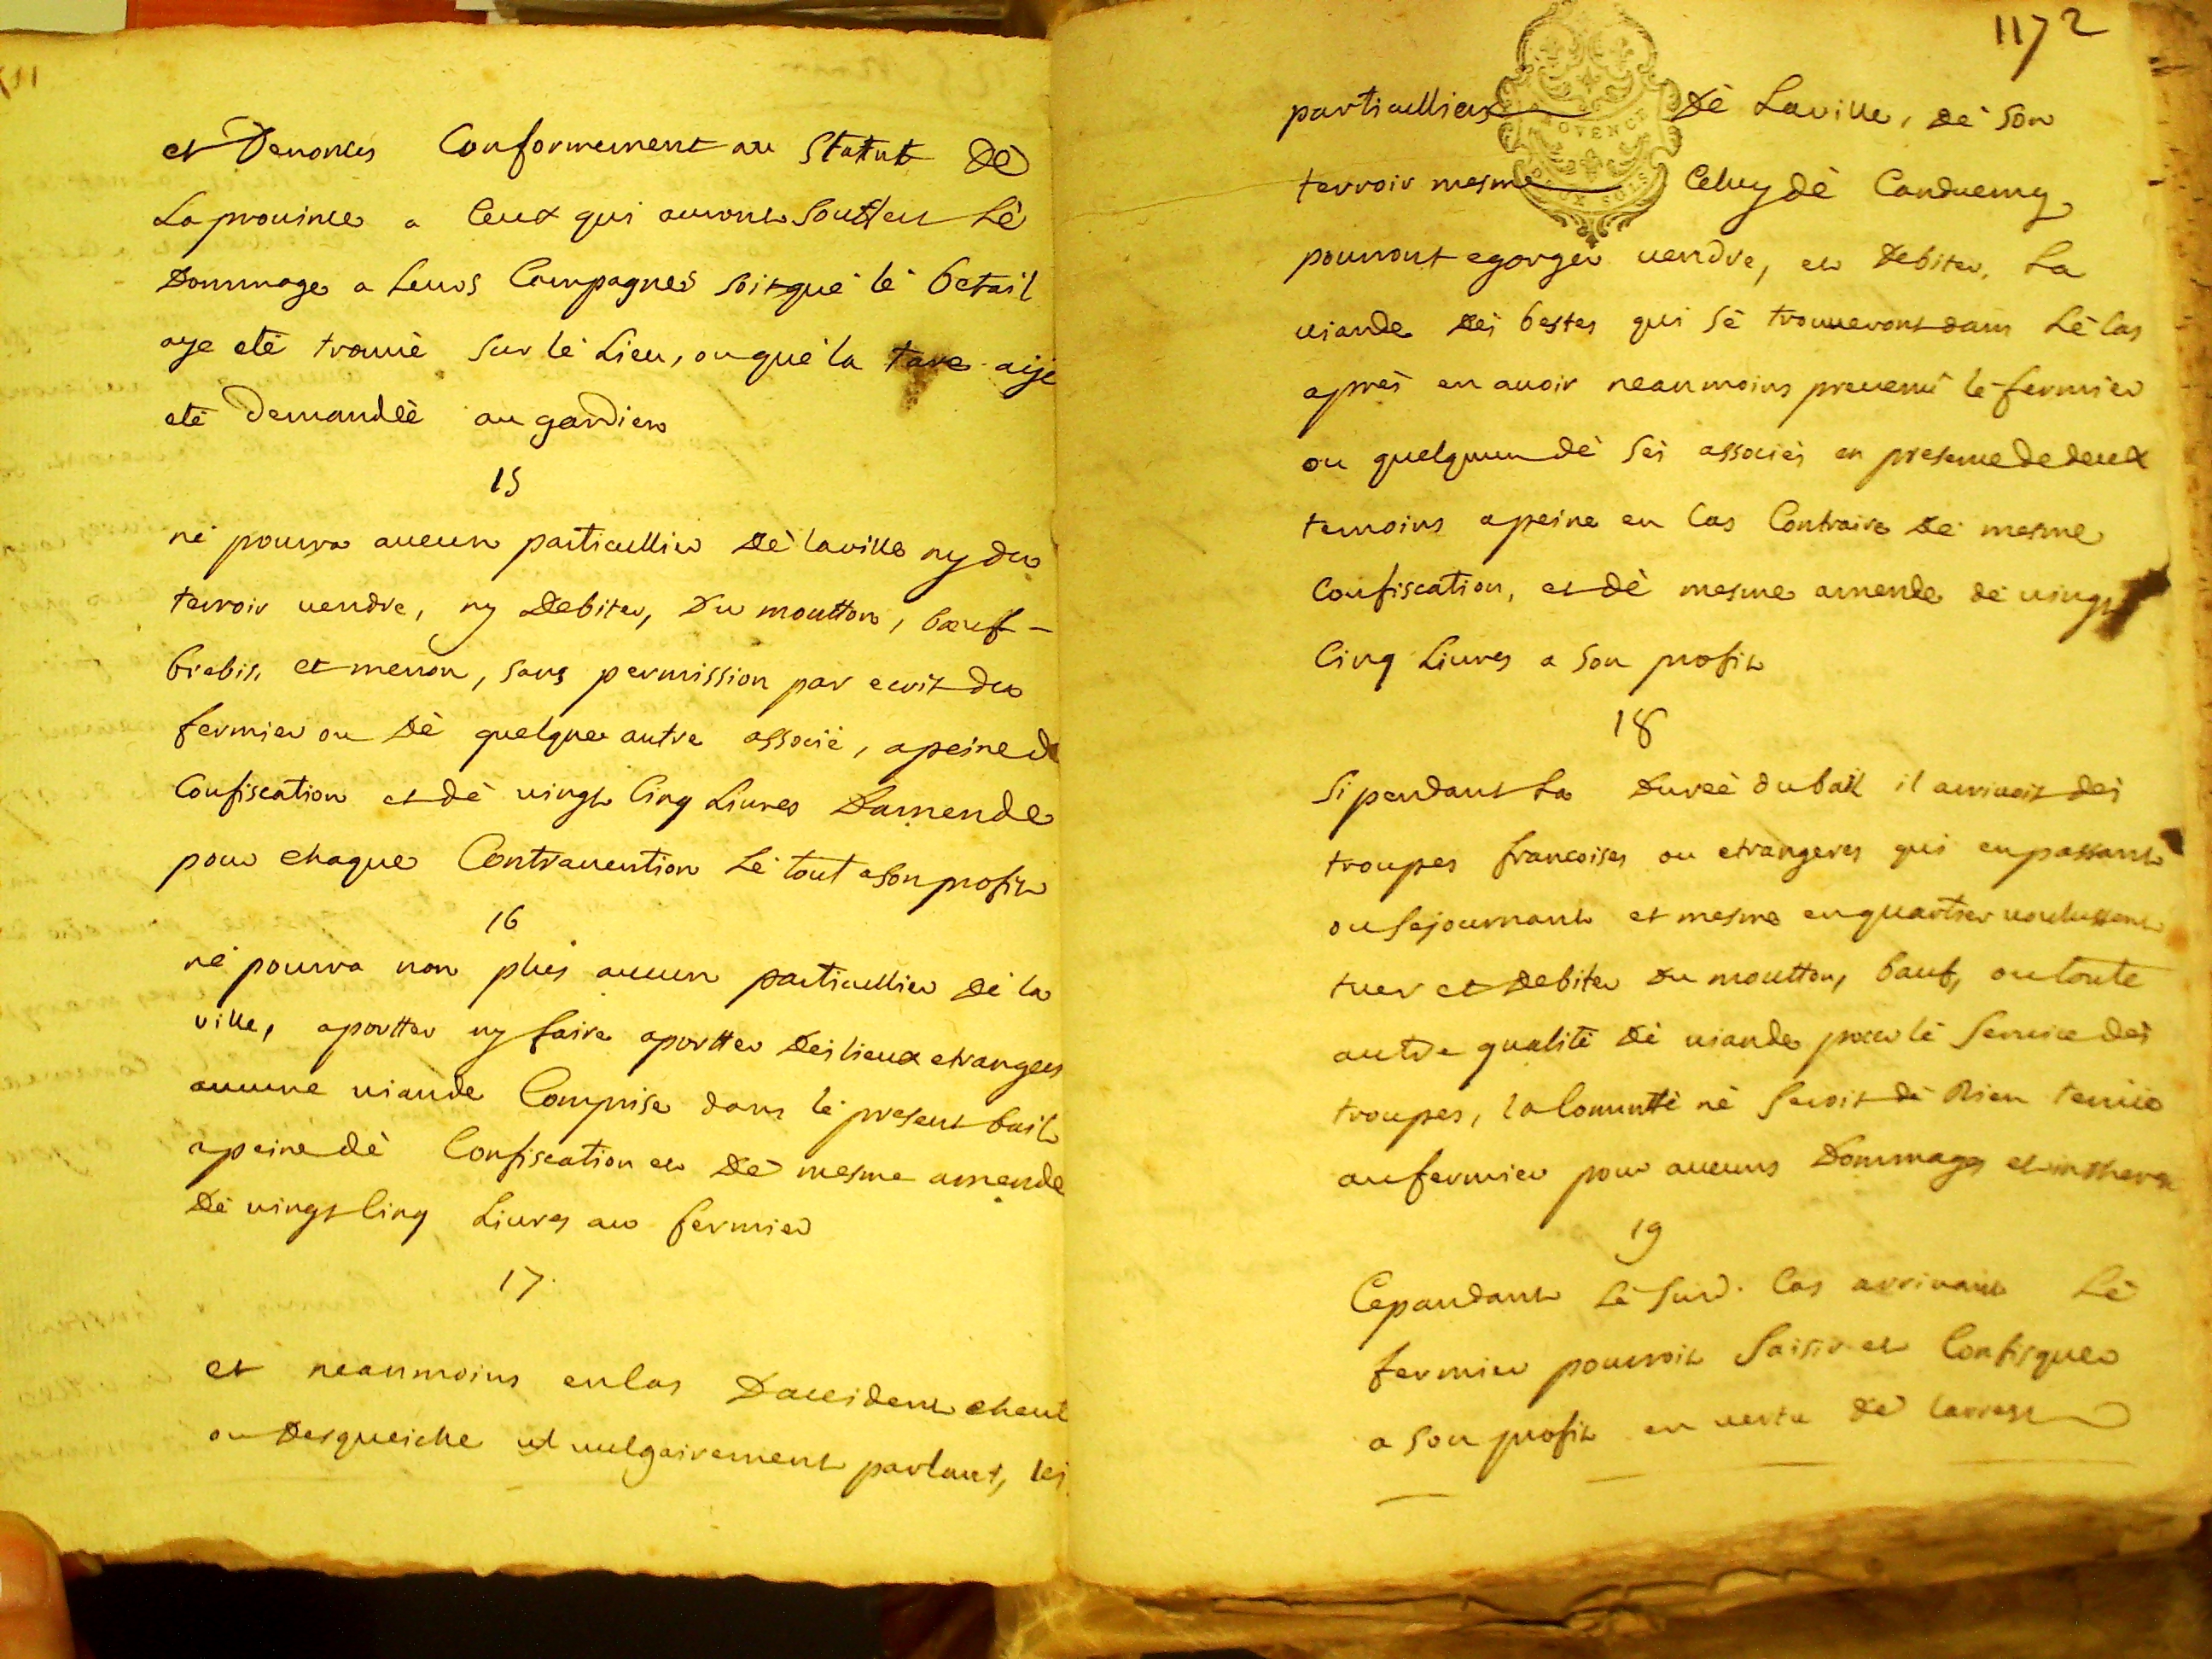 et Denonces Conformement au Statut Dè
La prouince a Ceux qui auront Souffert Lè
Dommage a Leurs Campagnes soit què lè betail
aye etè trouuè sur lè Lieu, ou què la taxe aije
etè Demandèè au gardien
15
nè pourra aucun particullier Dè la ville ny du
terroir uendre, ny Debiter, Du moutton, bœuf -
brebis, et menon, sans permission par ecrit du
fermier ou Dè quelque autre associè, a peine d
Confiscation et dè uingt Cinq Liures Damende
pour chaque Contrauention Lè tout a son profit
16
nè pourra non plus aucun particullier Dè la
ville, aportter ny faire aportter Dès lieux etrangers
aucune uiande Comprise dans lè present bail
a peine dè Confiscation et Dè mesme amende
Dè uingt Cinq Liures au fermier
17.
et neanmoins en Cas Daccident
ou uulgairement parlant, lès
1172
particulliers Dè La uille, dè son
PROVENCE
terroir mesme Celuy dè
DEUX SOLS
pourront egorger uendre, et Debiter, La
uiande Dès bestes qui sè trouueront dans Lè Cas
après en auoir neanmoins preuenu lè fermier
ou quelquun dè sès associès en presence de deux
temoins a peine en Cas Contraire Dè mesme
Confiscation, et dè mesme amende dè uingt
Cinq Liures a son profit
18
Si pendant La Dureè du bail il arriuoit dès
troupes francoises ou etrangeres qui en passant
ou Sejournant et mesme en quartier uoulussent
tuer et Debiter Du moutton, bœuf, ou toute
autre qualitè Dè uiande pour lè Seruice dès
troupes, la Commttè nè Seroit dè Rien tenüe
au fermier pour aucuns Dommages et
19
Cepandant Lè Susd. Cas arriuant Lè
fermier pourroit Saisir et Confisquer
a son profit en uertu dè larrest